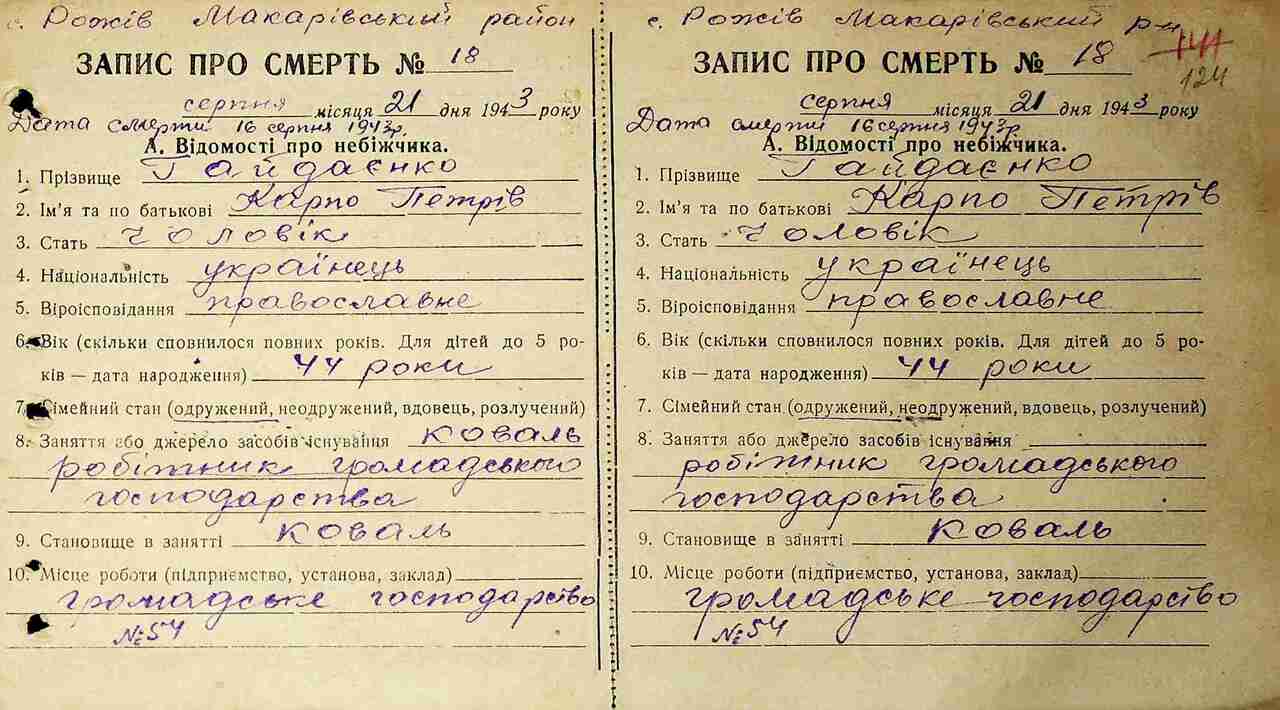 с. Рожів Макарівський район
ЗАПИС ПРО СМЕРТЬ № 18
серпня місяця 21 дня 1943 року
Дата смерти 16 серпня 1943р.
А. Відомості про небіжчика.
1. Прізвище Гайдаєнко
2. Ім'я та по батькові Карпо Петрів
3. Стать чоловік
4. Національність українець
5. Віроісповідання православне
6. Вік (скільки сповнилося повних років. Для дітей до 5 ро-
ків — дата народження) 44 роки
7. Сімейний стан (одружений, неодружений, вдовець, розлучений)
8. Заняття або джерело засобів існування коваль
робітник громадського
господарства
9. Становище в занятті коваль
10. Місце роботи (підприємство, установа, заклад)
громадське господарство
№ 54
с. Рожів Макарівський р-н
141
124
ЗАПИС ПРО СМЕРТЬ № 18
серпня місяця 21 дня 1943 року
Дата смерти 16 серпня 1943р.
А. Відомості про небіжчика.
1. Прізвище Гайдаєнко
2. Ім'я та по батькові Карпо Петрів
3. Стать чоловік
4. Національність українець
5. Віроісповідання православне
6. Вік (скільки сповнилося повних років. Для дітей до 5 ро-
ків — дата народження) 44 роки
7. Сімейний стан (одружений, неодружений, вдовець, розлучений)
8. Заняття або джерело засобів існування
робітник громадського
господарства
9. Становище в занятті коваль
10. Місце роботи (підприємство, установа, заклад)
громадське господарство
№ 54